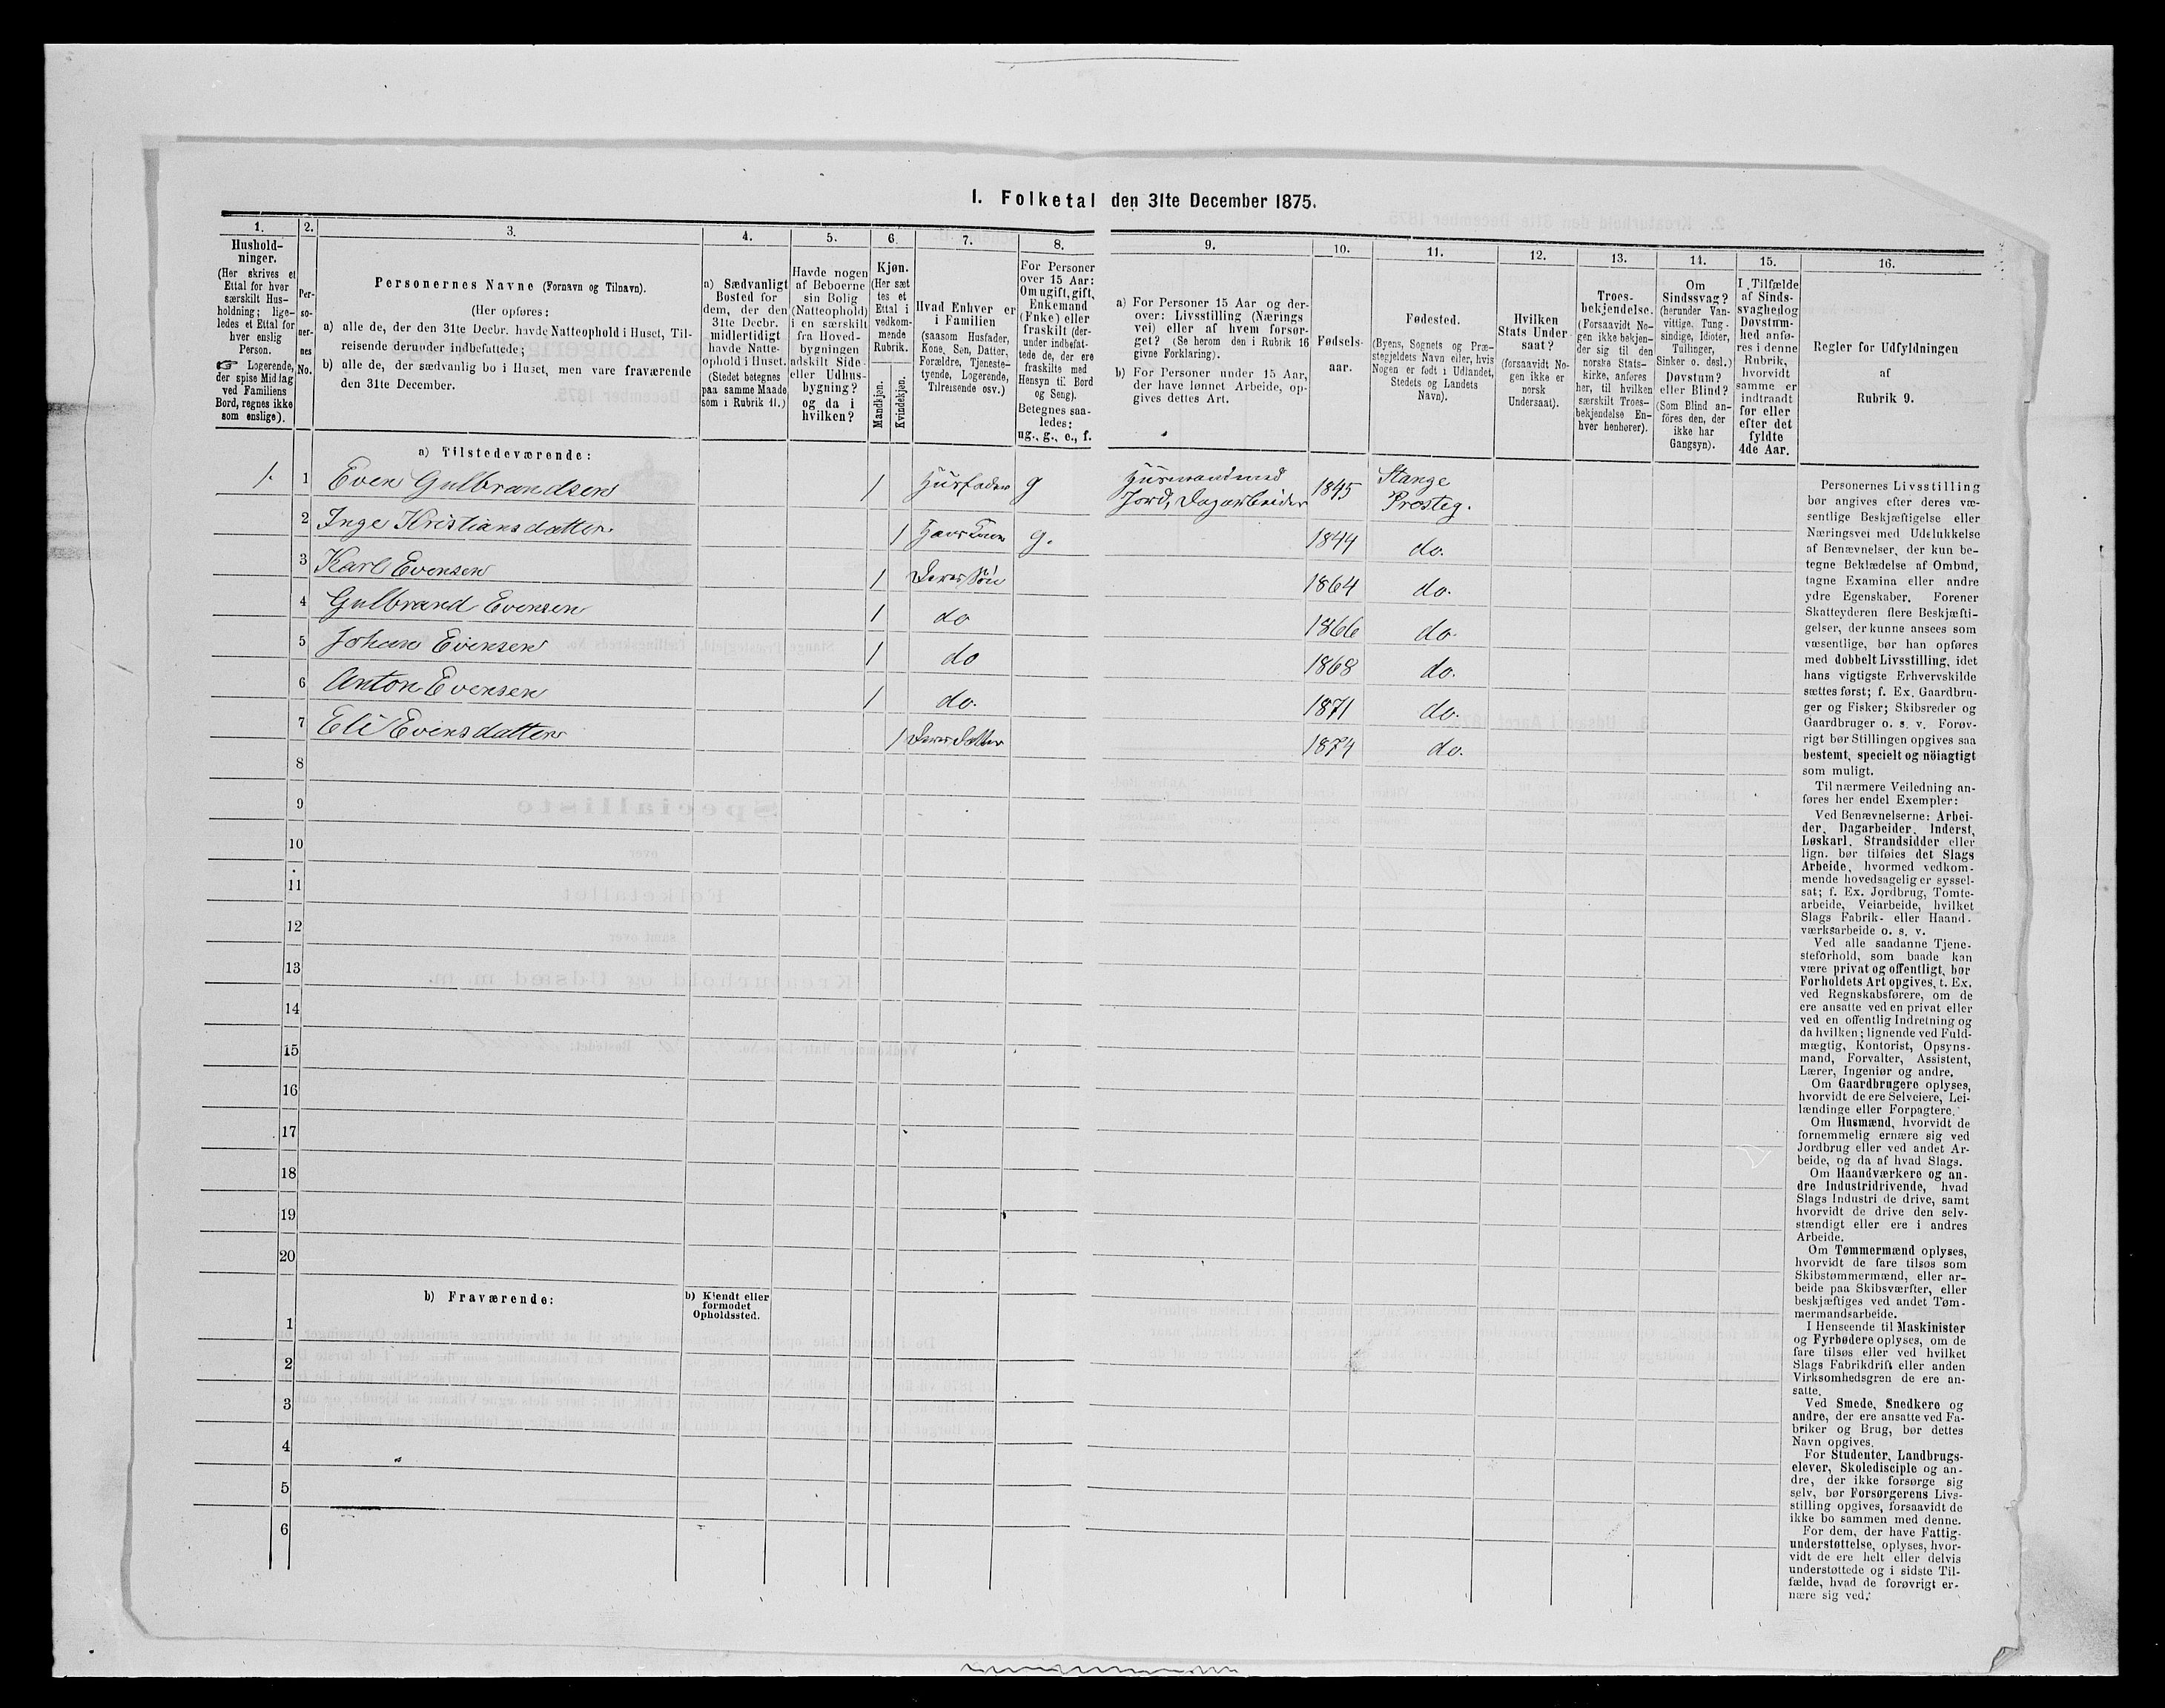 I. Folketal den 31te December 1875.
1.
Hushold-
ninger.
(Her skrives et
Ettal for hver
særskilt Hus-
holdning; lige-
ledes et Ettal for
hver enslig
Person.
☞ Logerende,
der spise Middag
ved Familiens
Bord, regnes ikke
som enslige).
2.
Per-
so-
ner-
nes
No.
3.
Personernes Navne (Fornavn og Tilnavn).
(Her opføres:
a) alle de, der den 31te Decbr. havde Natteophold i Huset, Til-
reisende derunder indbefattede;
b) alle de, der sædvanlig bo i Huset, men vare fraværende
den 31te December.
4.
a) Sædvanligt
Bosted for
dem, der den
31te Decbr.
midlertidigt
havde Natte-
ophold i Huset.
(Stedet betegnes
paa samme Maade
som i Rubrik 11.)
5.
Havde nogen
af Beboerne
sin Bolig
(Natteophold)
i en særskilt
fra Hoved-
bygningen
adskilt Side-
eller Udhus-
bygning?
og da i
hvilken?
6.
Kjøn.
(Her sæt
tes et
Ettal i
vedkom-
mende
Rubrik.
Mandkjøn.
Kvindekjøn.
7.
Hvad Enhver er
i Familien
(saasom Husfader,
Kone, Søn, Datter,
Forældre, Tjeneste-
tyende, Logerende,
Tilreisende osv.)
8.
For Personer
over 15 Aar:
Om ugift, gift,
Enkemand
(Enke) eller
fraskilt (der-
under indbefat-
tede de, der ere
fraskilte med
Hensyn til Bord
og Seng).
Betegnes saa-
ledes:
ug., g., e., f.
9.
a) For Personer 15 Aar og der-
over: Livsstilling (Nærings
vei) eller af hvem forsør-
get? (Se herom den i Rubrik 16
givne Forklaring).
b) For Personer under 15 Aar,
der have lønnet Arbeide, op-
gives dettes Art.
10.
Fødsels-
aar.
11.
Fødested.
(Byens, Sognets og Præ-
stegjeldets Navn eller, hvis
Nogen er født i Udlandet,
Stedets og Landets
Navn).
12.
Hvilken
Stats Under-
saat?
(forsaavidt No-
gen ikke er
norsk
Undersaat).
13.
Troes-
bekjendelse.
(Forsaavidt No-
gen ikke bekjen-
der sig til den
norske Stats-
kirke, anføres
her, til hvilken
særskilt Troes-
bekjendelse En-
hver henhører).
14.
Om
Sindssvag?
(herunder Van-
vittige, Tung-
sindige, Idioter,
Tullinger,
Sinker o. desl.)
Døvstum?
eller Blind?
(Som Blind an-
føres den, der
ikke har
Gangsyn).
15.
I Tilfælde
af Sinds-
svaghed og
Døvstum-
hed anfø-
res i denne
Rubrik,
hvorvidt
samme er
indtraadt
før eller
efter det
fyldte
4de Aar.
16.
Regler for Udfyldningen
af
Rubrik 9.
a) Tilstedeværende:
1. 1 Even Gulbrandsen 1 Husfader g Husmand med Jord, Dagarbeider 1845 Stange Presteg.
2 Inge Kristiansdatter 1 Hans Kone g. 1844 do.
3 Karl Evensen 1 Deres Søn 1864 do.
4 Gulbrand Evensen 1 do 1866 do.
5 Johan Evensen 1 do 1868 do.
6 Anton Evensen 1 do. 1871 do.
7 Eli Evensdatter 1 Deres Datter 1874 do.
8
9
10
11
12
13
14
15
16
17
18
19
20
b) Fraværende:
b) Kjendt eller
formodet
Opholdssted.
1
2
3
4
5
6
Personernes Livsstilling
bør angives efter deres væ-
sentlige Beskjæftigelse eller
Næringsvei med Udelukkelse
af Benævnelser, der kun be-
tegne Beklædelse af Ombud,
tagne Examina eller andre
ydre Egenskaber. Forener
Skatteyderen flere Beskjæfti-
gelser, der kunne ansees som
væsentlige, bør han opføres
med dobbelt Livsstilling, idet
hans vigtigste Erhvervskilde
sættes først; f. Ex. Gaardbru-
ger og Fisker; Skibsreder og
Gaardbruger o. s. v. Forøv-
rigt bør Stillingen opgives saa
bestemt, specielt og nöiagtigt
som muligt.
Til nærmere Veiledning an-
føres her endel Exempler:
Ved Benævnelserne: Arbei-
der, Dagarbeider, Inderst,
Løskarl, Strandsidder eller
lign. bør tilføies det Slags
Arbeide, hvormed vedkom-
mende hovedsagelig er syssel-
sat; f. Ex. Jordbrug, Tomte-
arbeide, Veiarbeide, hvilket
Slags Fabrik- eller Haand-
værksarbeide o. s. v.
Ved alle saadanne Tjene-
steforhold, som baade kan
være privat og offentligt, bør
Forholdets Art opgives, t. Ex.
ved Regnskabsførere, om de
ere ansatte ved en privat eller
ved en offentlig Indretning og
da hvilken; lignende ved Fuld-
mægtig, Kontorist, Opsyns-
mand, Forvalter, Assistent,
Lærer, Ingeniør og andre.
Om Gaardbrugere oplyses,
hvorvidt de ere Selveiere, Lei-
lændinge eller Forpagtere.
Om Husmænd, hvorvidt de
fornemmelig ernære sig ved
Jordbrug eller ved andet Ar-
beide, og da af hvad Slags.
Om Haandværkere og an-
dre Industridrivende, hvad
Slags Industri de drive, samt
hvorvidt de drive den selv-
stændigt eller ere i andres
Arbeide.
Om Tømmermænd oplyses,
hvorvidt de fare tilsøs som
Skibstømmermænd, eller ar-
beide paa Skibsværfter, eller
beskjæftiges ved andet Tøm-
mermandsarbeide.
I Henseende til Maskinister
og Fyrbødere oplyses, om de
fare tilsøs eller ved hvilket
Slags Fabrikdrift eller anden
Virksomhedsgren de ere an-
satte.
Ved Smede, Snedkere og
andre, der ere ansatte ved Fa-
briker og Brug, bør dettes
Navn opgives.
For Studenter, Landbrugs-
elever, Skoledisciple og an-
dre, der ikke forsørge sig
selv, bør Forsørgerens Livs-
stilling opgives, forsaavidt de
ikke bo sammen med denne.
For dem, der have Fattig-
understøttelse, oplyses, hvor-
vidt de ere helt eller delvis
understøttede og i sidste Til-
fælde, hvad de forøvrigt er-
nære sig ved.